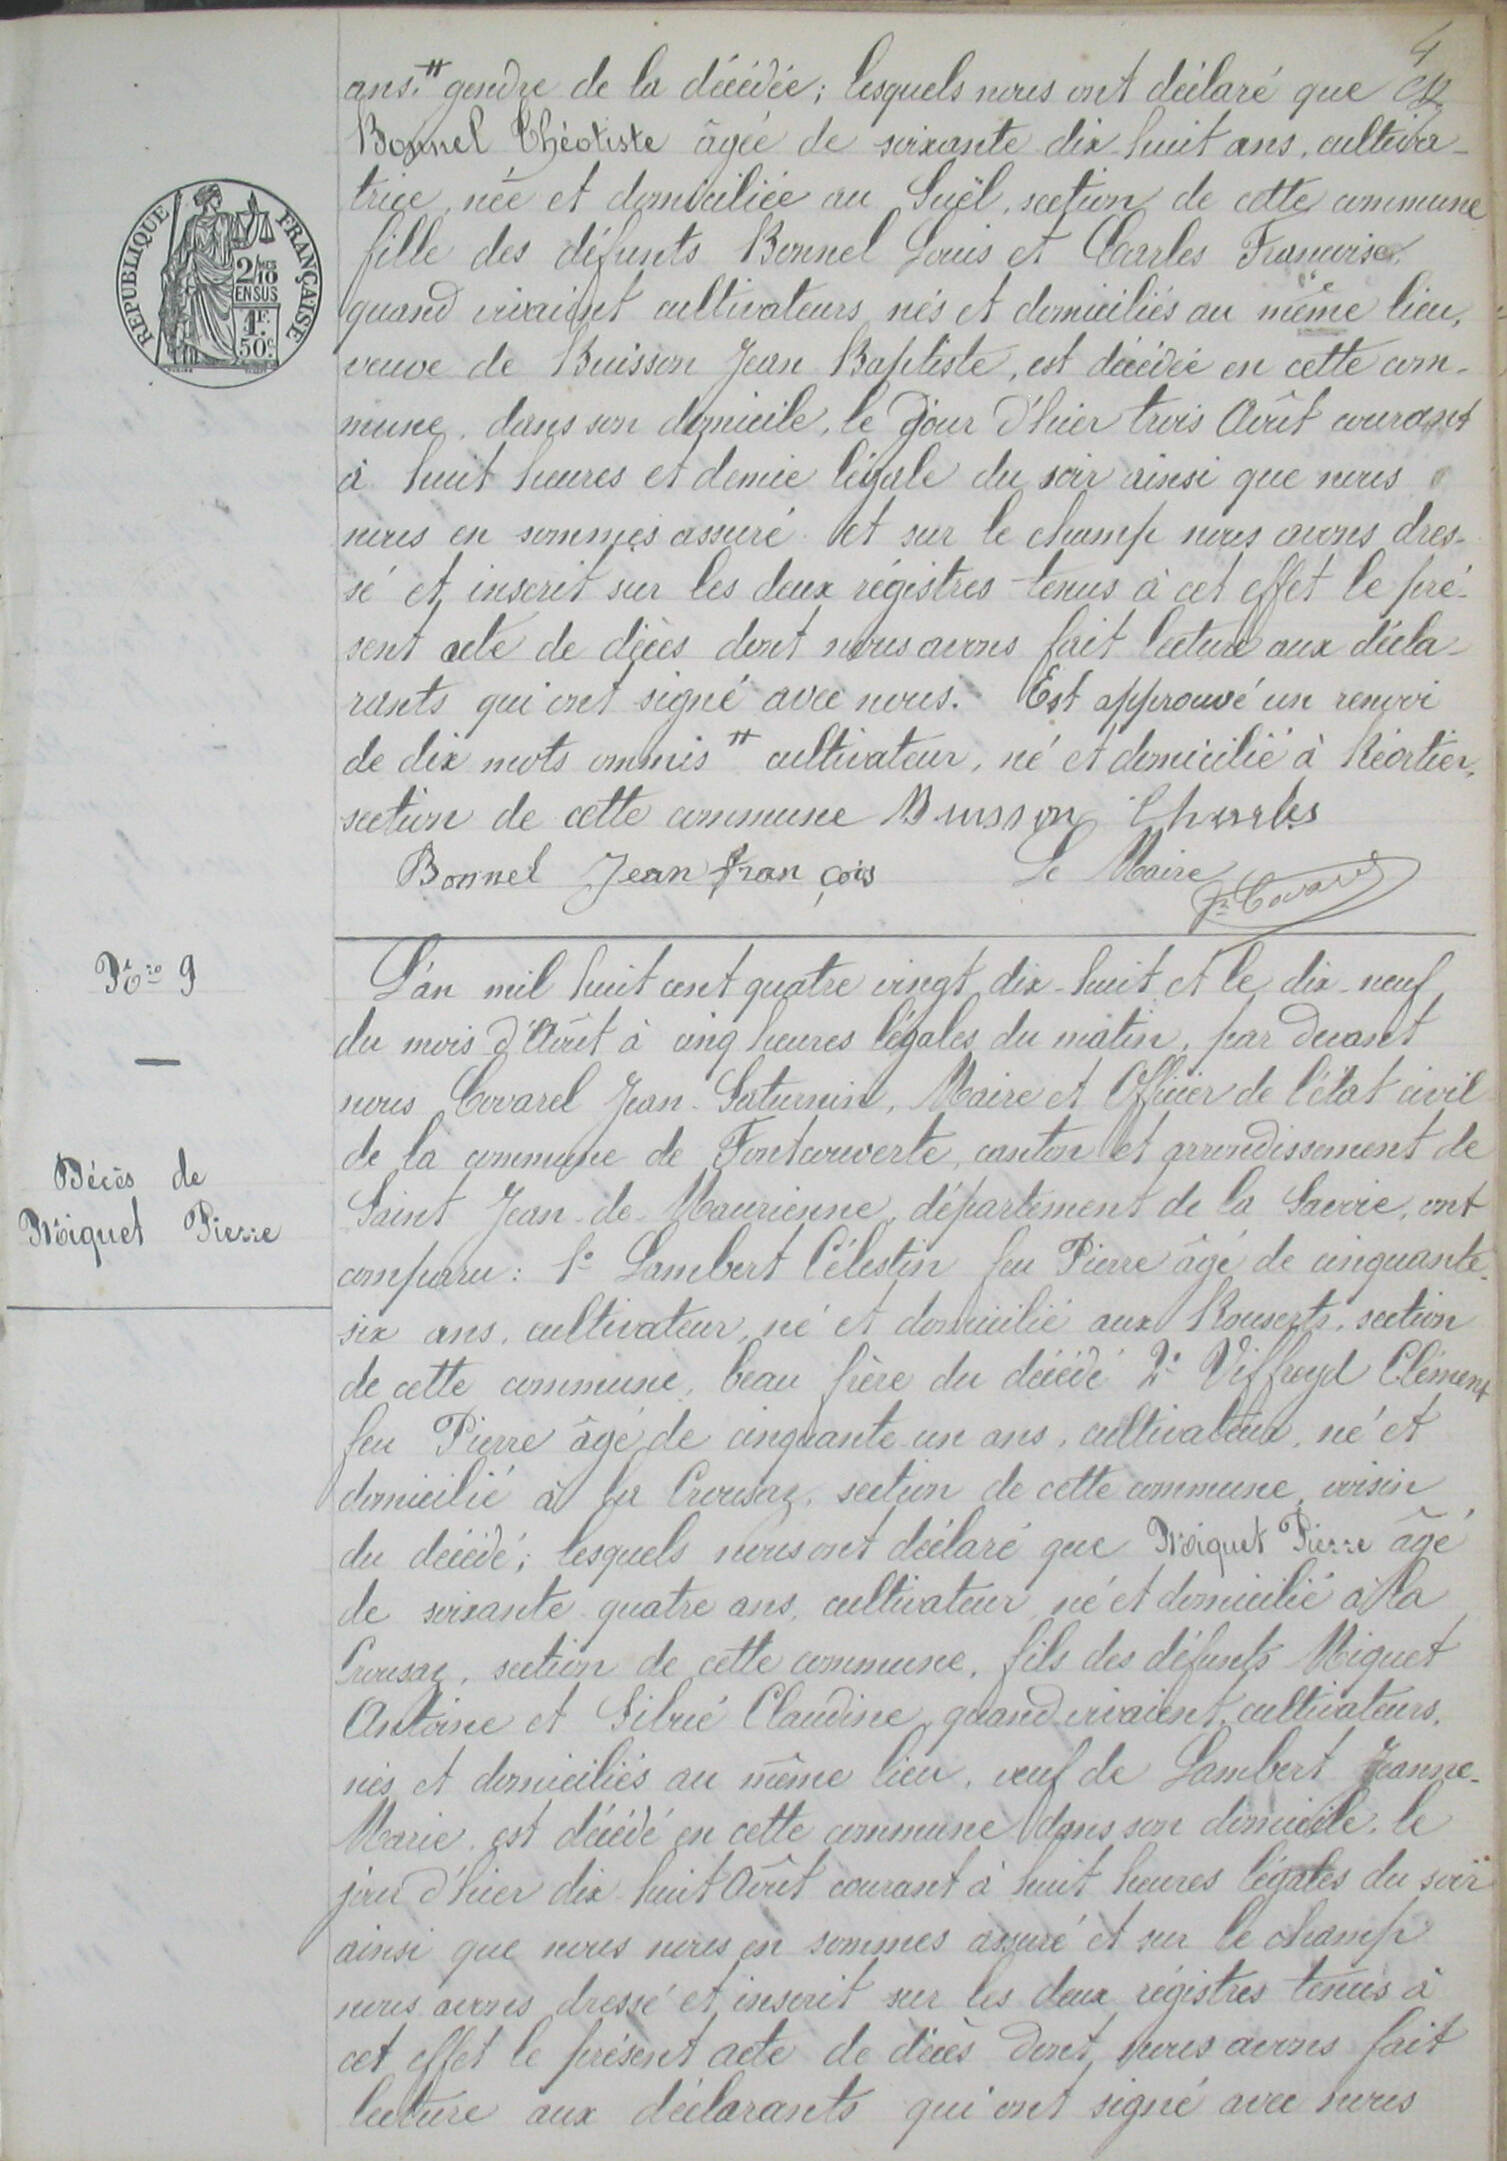 4
ans," gendre de la décédée; lesquels nous ont déclaré que
Bonnel Théotiste âgée de soixante dix-huit ans, cultiva-
trice, née et domiciliée au Suël, section de cette commune
fille des défunts Bonnel Louis et Charles Francoise,
quand vivaient cultivateurs nés et domiciliés au même lieu,
veuve de Buisson Jean Baptiste, est décédée en cette com-
mune, dans son domicile, le jour d'hier trois Août courant
à huit heures et demie légale du soir ainsi que nous
nous en sommes assuré et sur le champ nous avons dres-
sé et inscrit sur les deux régistres tenus à cet effet le pré-
sent acte de décès dont nous avons fait lecture aux décla-
rants qui ont signé avec nous. Est approuvé un renvoi
de dix mots ommis " cultivateur, né et domicilié à Réortier,
section de cette commune Buisson Charles
Bonnel Jean françois Le Maire
Jn Covarel
REPUBLIQUE FRANÇAISE
2/10 EN SUS
1F. 50c.
No 9
Décès de
Miquet Pierre
L'an mil huit cent quatre vingt dix-huit et le dix-neuf
du mois d'Août à cinq heures légales du matin, par devant
nous Covarel Jean-Saturnin, Maire et Officier de l'état civil
de la commune de Fontcouverte, canton et arrondissement de
Saint Jean-de-Maurienne, département de la Savoie, ont
comparu: 1° Lambert Célestin feu Pierre âgé de cinquante-
six ans, cultivateur, né et domicilié aux Rouserts, section
de cette commune, beau frère du décédé 2° Viffroyd Clément
feu Pierre âgé de cinquante-un ans, cultivateur, né et
domicilié à la Crousaz, section de cette commune, voisin
du décédé; lesquels nous ont déclaré que Miquet Pierre âgé
de soixante quatre ans, cultivateur né et domicilié à la
Crousaz, section de cette commune, fils des défunts Miquet
Antoine et Sibué Claudine, quand vivaient, cultivateurs,
nés et domiciliés au même lieu, veuf de Lambert Jeanne-
Marie est décédé en cette commune dans son domicile, le
jour d'hier dix-huit Août courant à huit heures légales du soir
ainsi que nous nous en sommes assuré et sur le champ
nous avons dressé et inscrit sur les deux régistres tenus à
cet effet le présent acte de décès dont nous avons fait
lecture aux déclarants qui ont signé avec nous